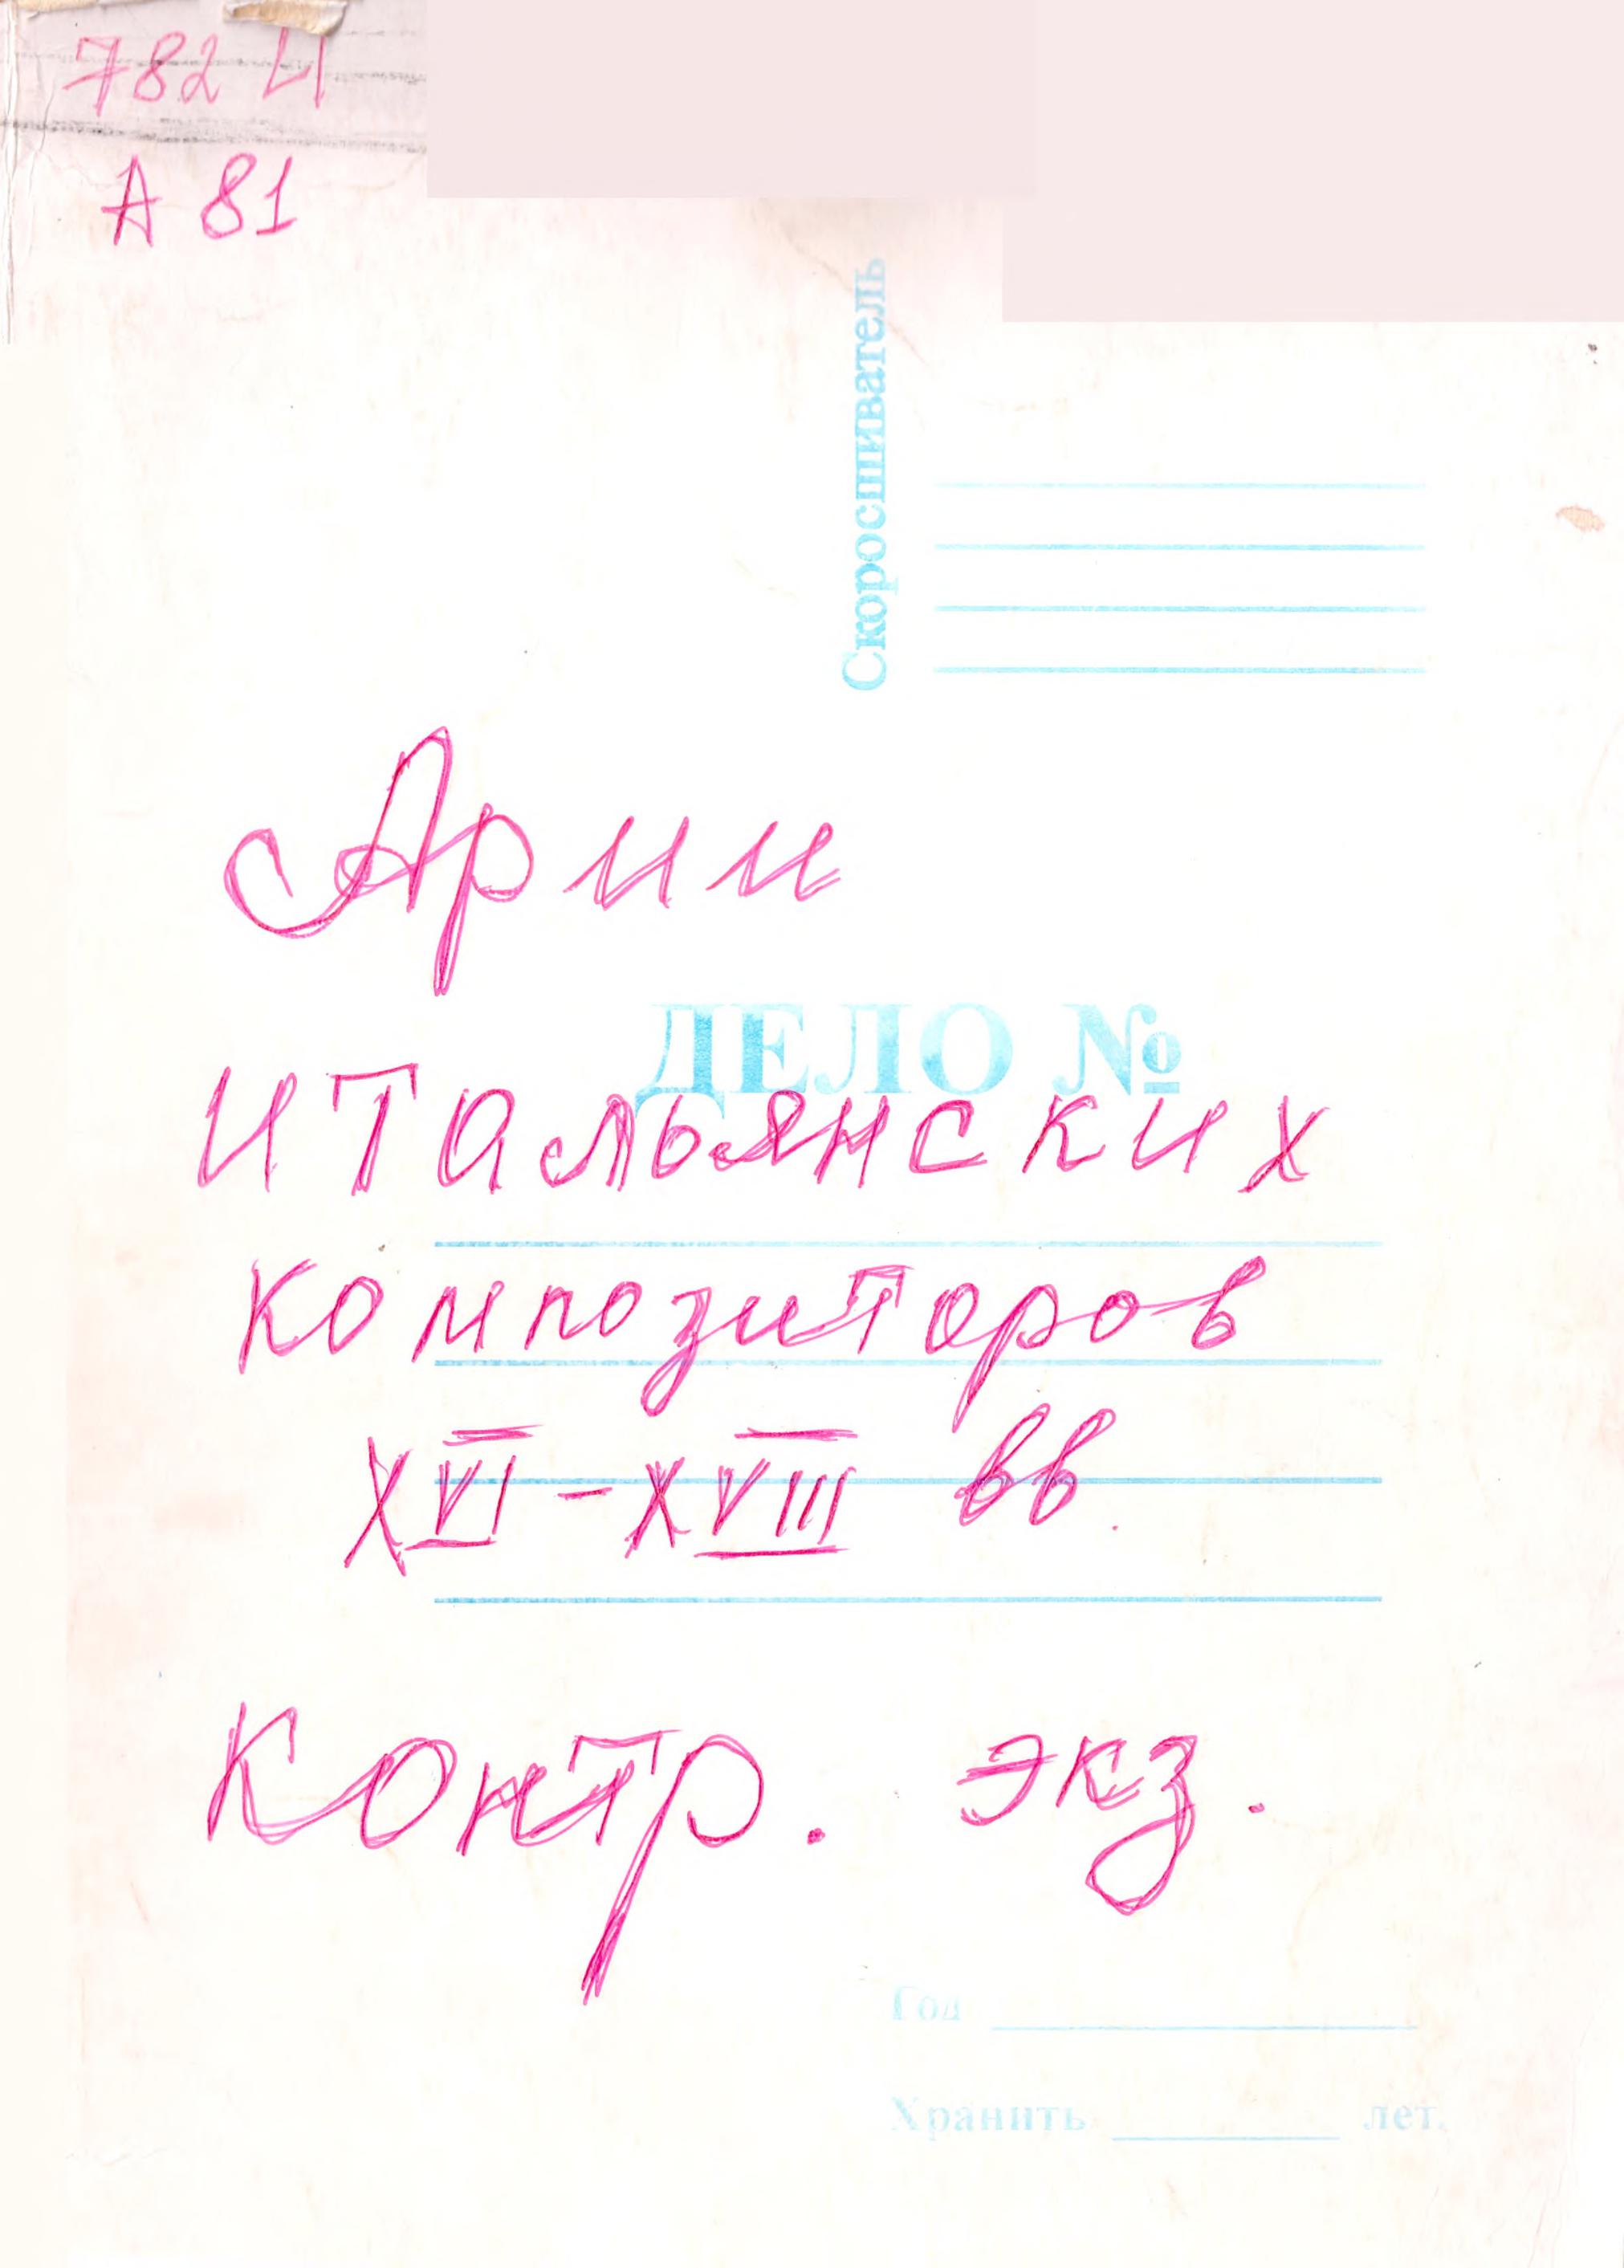 782 И
А 81
Скоросшиватель
Арии
ДЕЛО №
итальянских
композиторов
XVI - XVIII вв.
Контр. экз.
Год
Хранить лет.